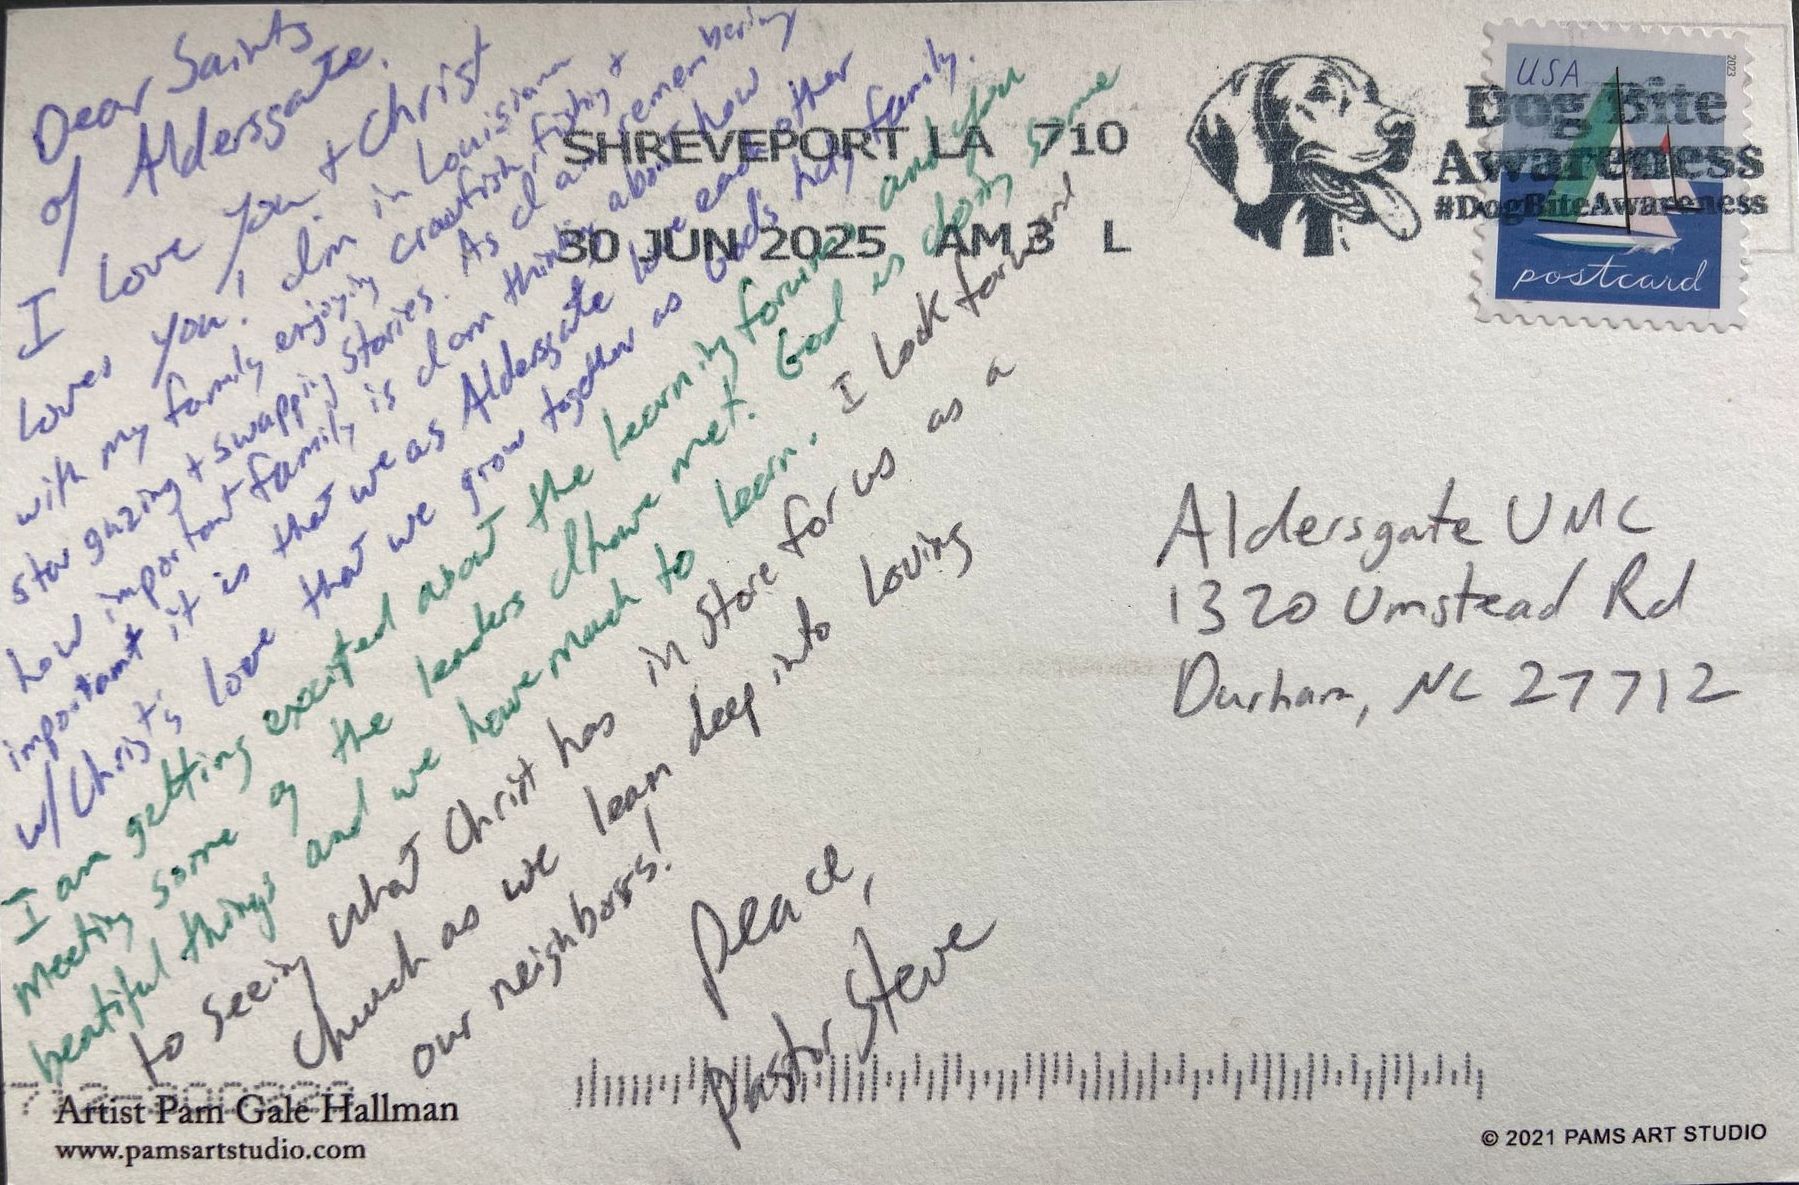 Dear Saints
of Aldersgate.
I love you & Christ
loves you! I'm in Louisiana
with my family enjoying crawfish, fishing &
star gazing & swapping stories. As I am remembering
how important family is I am thinking about how
important it is that we as Aldersgate love each other
w/ Christ's love that we grow together as God's holy family.
I am getting excited about the learning forums and
meeting some of the leaders I have met. God is doing some
beautiful things and we have much to learn. I look forward
to seeing what Christ has in store for us as a
church as we lean deep into loving
our neighbors!
Peace,
Pastor Steve
SHREVEPORT LA 710
30 JUN 2025 AM 3 L
Dog Bite
Awareness
#DogBiteAwareness
USA
2023
postcard
Aldersgate UMC
1320 Umstead Rd
Durham, NC 27712
Artist Pam Gale Hallman
www.pamsartstudio.com
© 2021 PAMS ART STUDIO